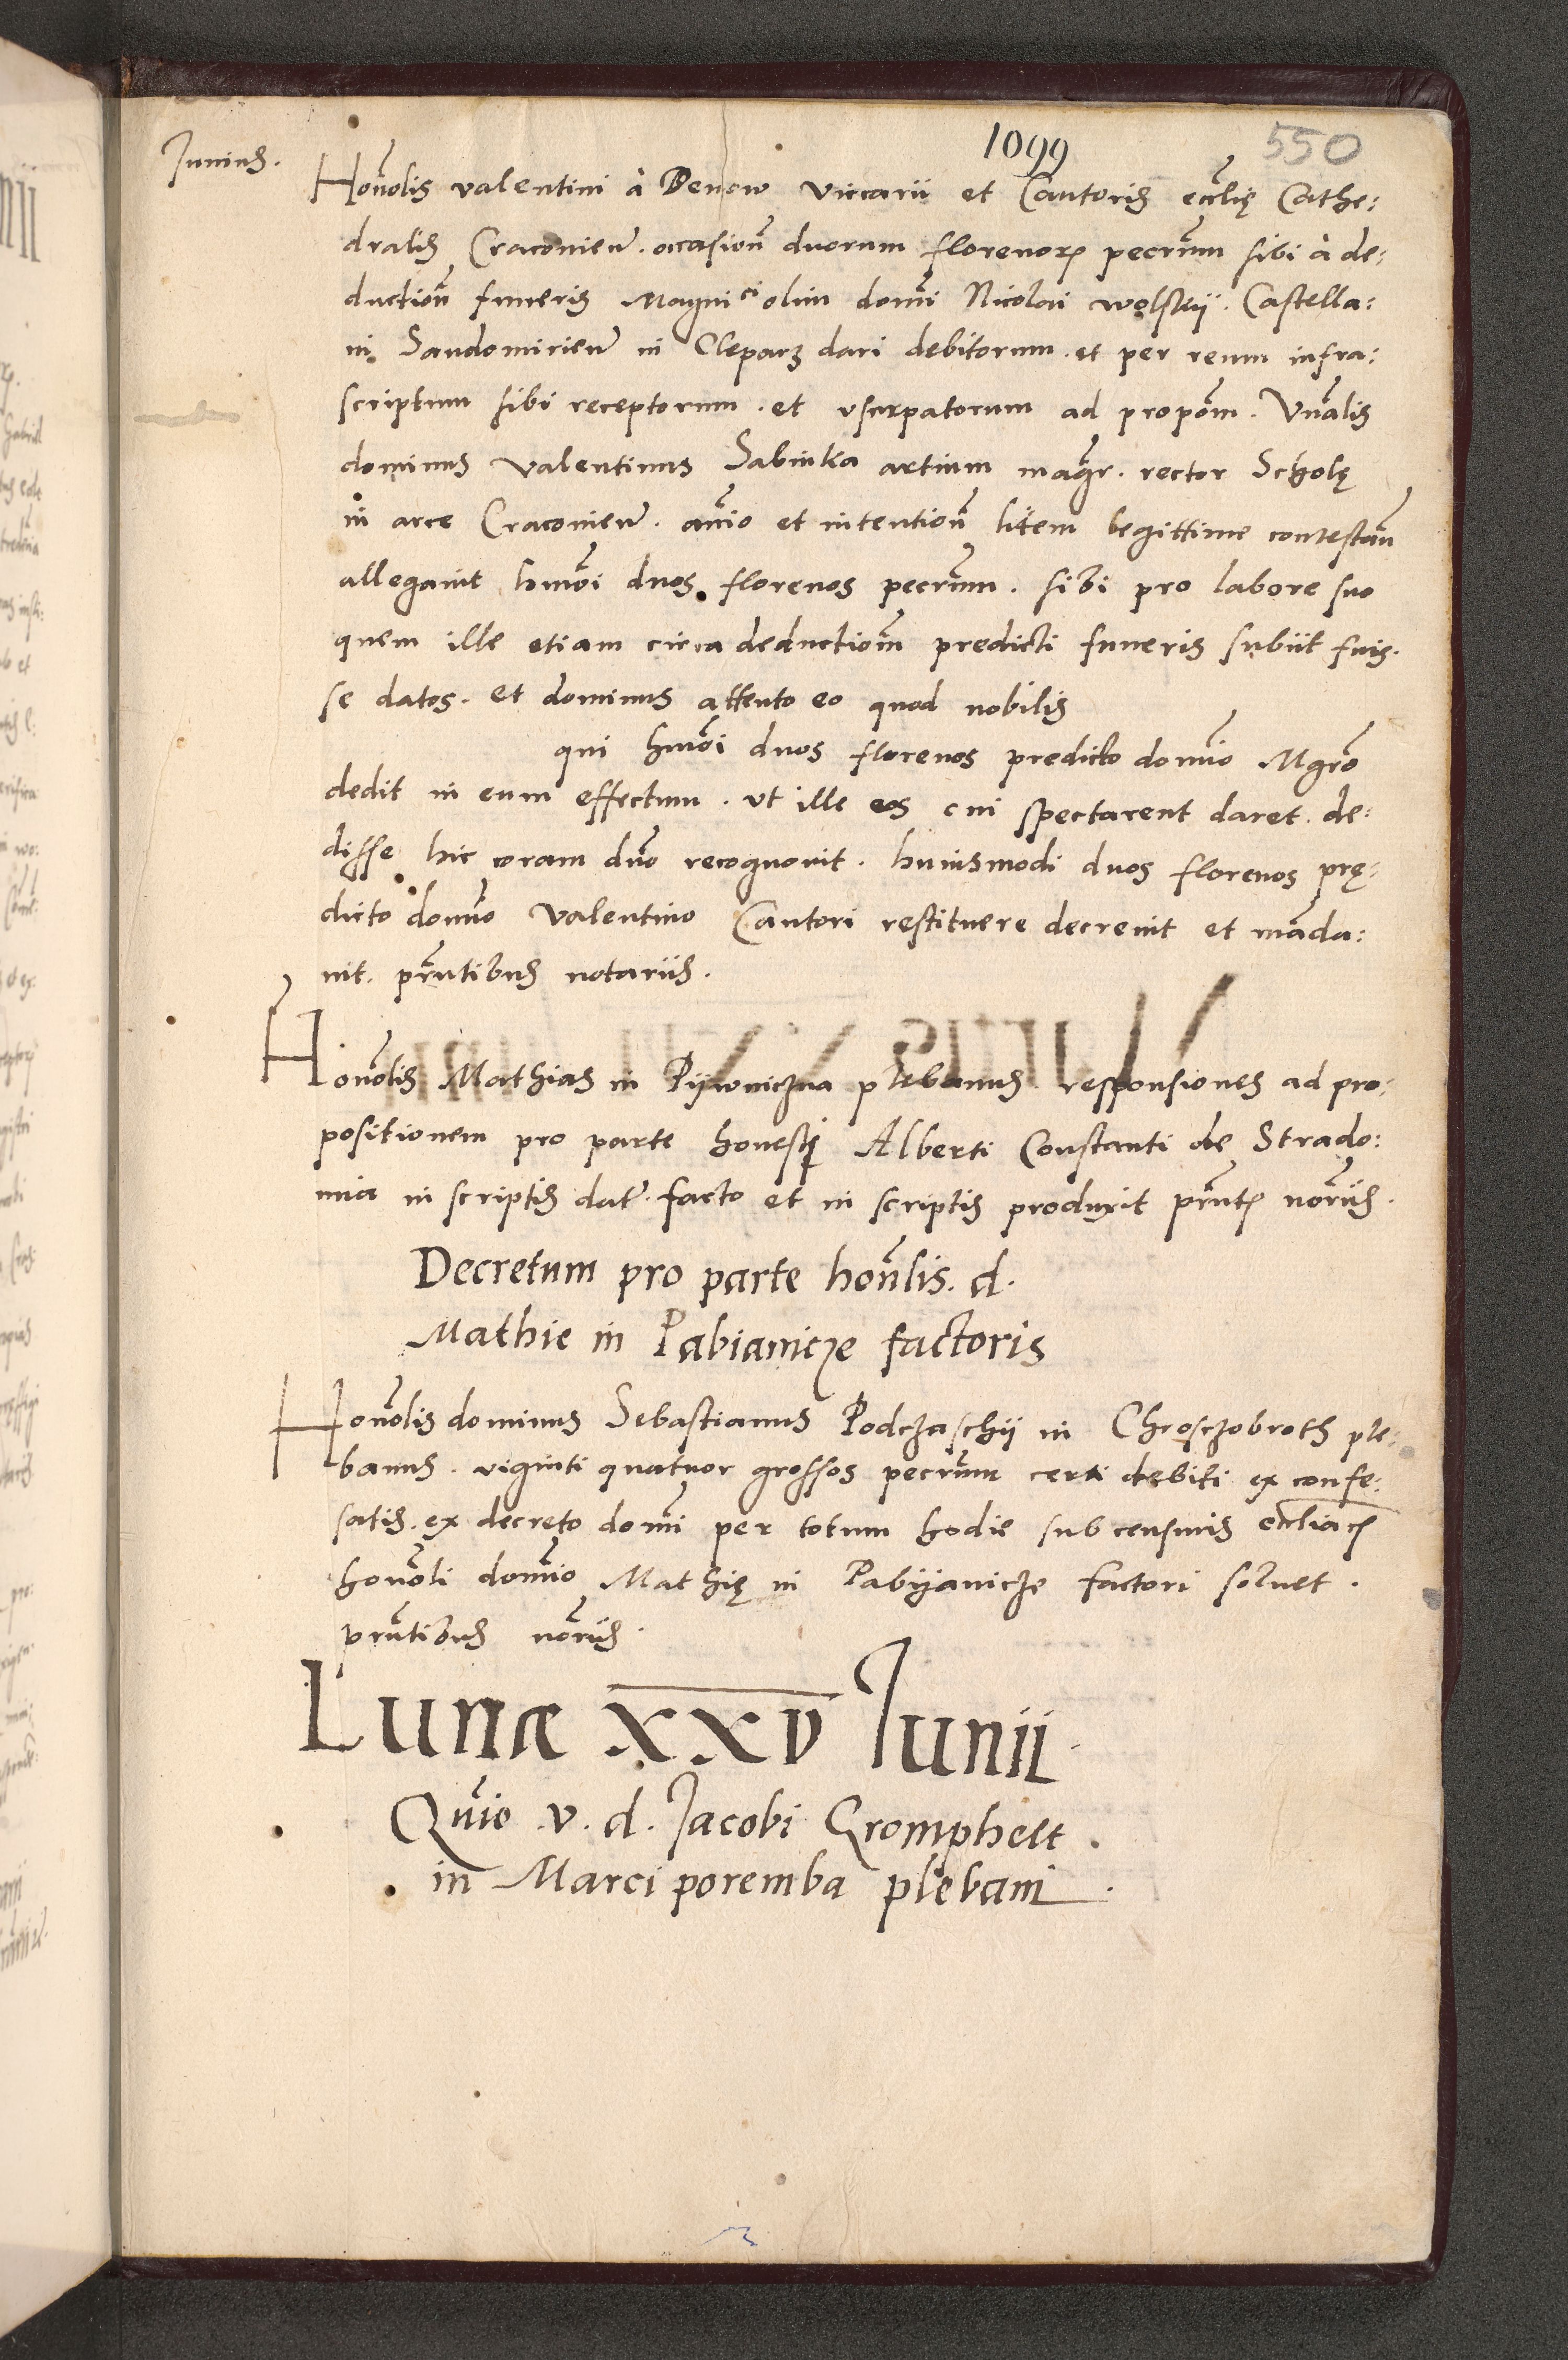 1099
550
Junius.
Honolis valentini à Denow viccarii et Cantoris eccliȩ Cathe:
dralis Cracovien. occasion duorum florenor pecunm sibi à de:
duction funeris Magnici olim domi Nicolai wolskij. Castella:
ni Sandomirien in Cleparz dari debitorum. et per reum infra:
scriptum sibi receptorum. et vsurpatorum ad propom. Vnalis
dominus valentinus Sabinka artium magr. rector Scholȩ
in arce Cracovien. animo et intention litem legittime contestan
allegavit hmoi duos florenos pecunm. sibi pro labore suo
quem ille etiam circa deductiom predicti funeris subiit fuis.
se datos. et dominus attento eo quod nobilis
qui hmoi duos florenos predicto domino Mgro
dedit in eum effectum. vt ille eos cui spectarent daret. de:
disse hic coram dno recognovit. huiusmodi duos florenos prȩ:
dicto domno valentino Cantori restituere decrevit et mada:
vit. prntibus notariis.
Honolis Mathias in Pijwniczna plebanus responsiones ad pro:
positionem pro parte honesti Alberti Constanti de Strado:
mia in scriptis dat. facto et in scriptis produxit prnt noriis.
Decretum pro parte honlis. d.
Mathie in Pabianicze factoris
Honolis dominus Sebastianus Podczaschij in Chrosczobroth ple:
banus. viginti quatuor grossos pecunm certi debiti ex confe:
satis. ex decreto domi per totum hodie sub censuris eccliac
honoli domino Mathiȩ in Pabijanicze factori solvet.
prntibus noriis.
Lunæ XXV Junii
Quie v. d. Jacobi Gromphelt.
in Marci poremba plebani.